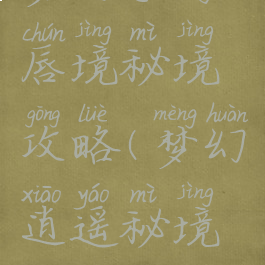 chún jìng mì jìng
唇境秘境
gōng lüè mèng huàn
攻略(梦幻
xiāo yáo mì jìng
逍遥秘境